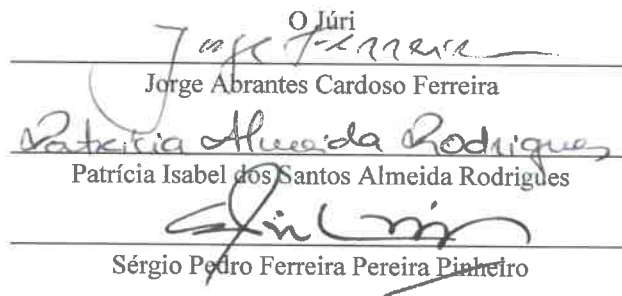 O Júri
Jorge Ferreira
Jorge Abrantes Cardoso Ferreira
Patrícia Almeida Rodrigues
Patrícia Isabel dos Santos Almeida Rodrigues
Sérgio Pedro Ferreira Pereira Pinheiro